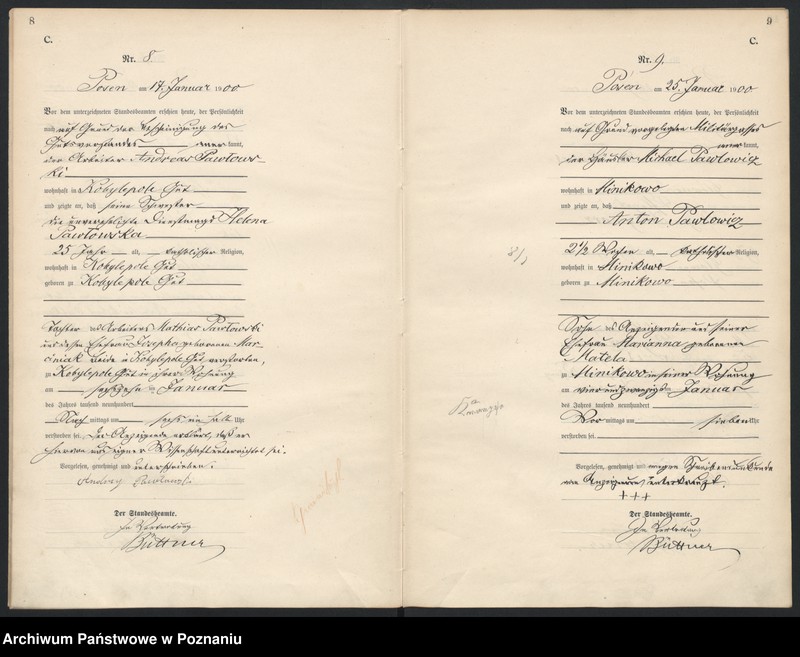 8
C.
Nr. 8.
Posen am 17. Januar 1900
Vor dem unterzeichneten Standesbeamten erschien heute, der Persönlichkeit
nach auf Grund der Bescheinigung des
Gutsvorstandes anerkannt,
der Arbeiter Andreas Pawlows-
ki
wohnhaft in Kobylepole Gut
und zeigte an, daß seine Schwester
die unverehelichte Dienstmagd Helena
Pawlowska
25 Jahr alt, katholischer Religion,
wohnhaft in Kobylepole Gut
geboren zu Kobylepole Gut
Tochter des Arbeiters Mathias Pawlowski
und dessen Ehefrau Josepha geborenen Mar-
ciniak beide in Kobylepole Gut verstorben,
zu Kobylepole Gut in ihrer Wohnung
am sechszehn ten Januar
des Jahres tausend neunhundert
Nach mittags um sechs ein halb Uhr
verstorben sei. Der Anzeigende erklärt, daß er
hiervon aus eigner Wissenschaft unterrichtet sei.
Vorgelesen, genehmigt und unterschrieben:
Der Standesbeamte.
In Vertretung
Büttner
9
C.
Nr. 9.
Posen am 25. Januar 1900
Vor dem unterzeichneten Standesbeamten erschien heute, der Persönlichkeit
nach auf Grund vorgelegten Militärpasses
anerkannt,
der Häusler Michael Pawlowicz
wohnhaft in Minikowo
und zeigte an, daß
Anton Pawlowicz
2 1/2 Wochen alt, katholischer Religion,
wohnhaft in Minikowo
geboren zu Minikowo
Sohn des Anzeigenden und seiner
Ehefrau Marianna geborenen
Matela
zu Minikowo in seiner Wohnung
am vier und zwanzigsten Januar
des Jahres tausend neunhundert
Vor mittags um sieben Uhr
verstorben sei.
Vorgelesen, genehmigt und wegen Schreibunkunde
vom Anzeigenden unterkreuzt.
+++
Der Standesbeamte.
In Vertretung
Büttner
Archiwum Państwowe w Poznaniu